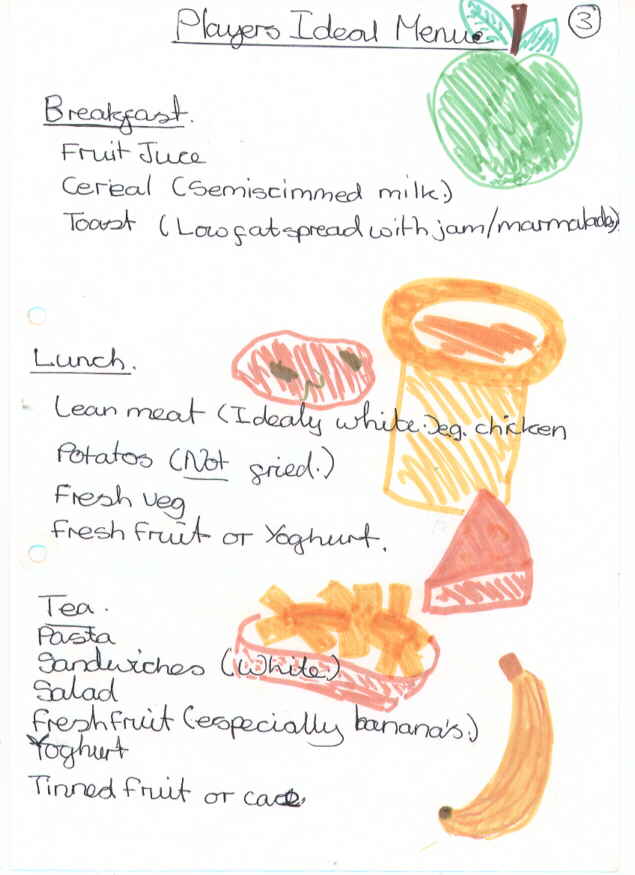 Players Ideal Menue
3
Breakfast.
Fruit Juce
Cereal (Semiscimmed milk.)
Toast (Low fat spread with jam/marmalade)
Lunch.
Lean meat (Idealy white.) eg. chicken
Potatos (Not fried.)
Fresh veg
Fresh fruit or Yoghurt.
Tea.
Pasta
Sandwiches (White.)
Salad
Fresh fruit (especially banana's.)
Yoghurt
Tinned fruit or